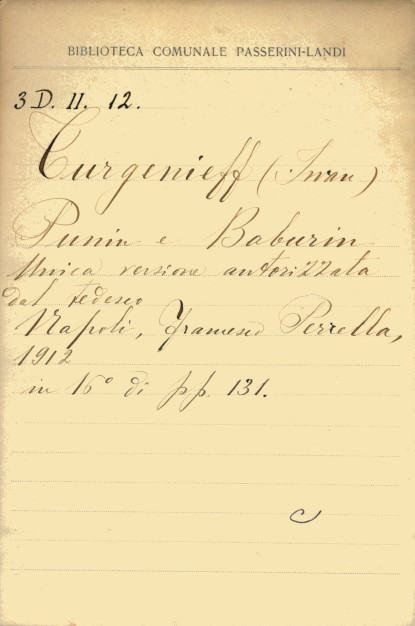 BIBLIOTECA COMUNALE PASSERINI-LANDI
3 D. II. 12.
Turgenieff (Iwan)
Punin e Baburin
Unica versione autorizzata
dal tedesco
Napoli, Francesco Perrella,
1912
in 16° di pp. 131.